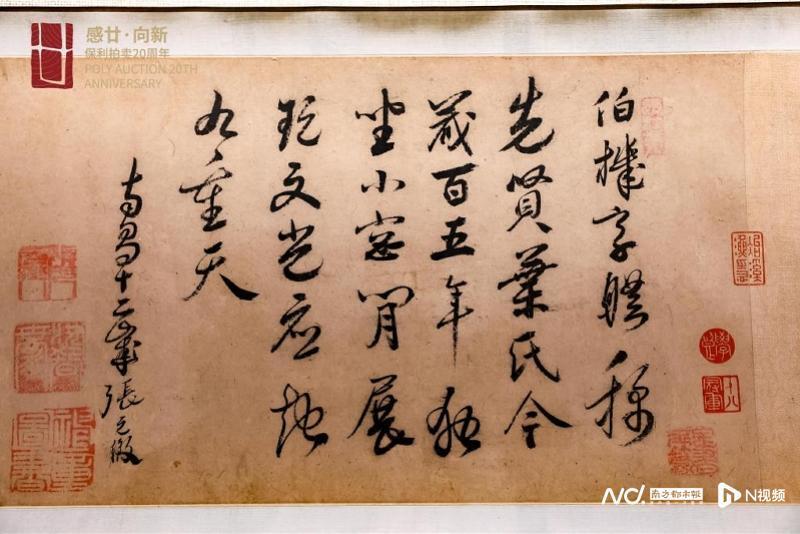 感廿·向新
保利拍卖20周年
POLY AUCTION 20TH
ANNIVERSARY
伯機字體称
先賢葉氏今
藏百五年獨
坐小窗閒展
玩文光應起
九重天
南昌十二峯張之
南方都市報
N视频